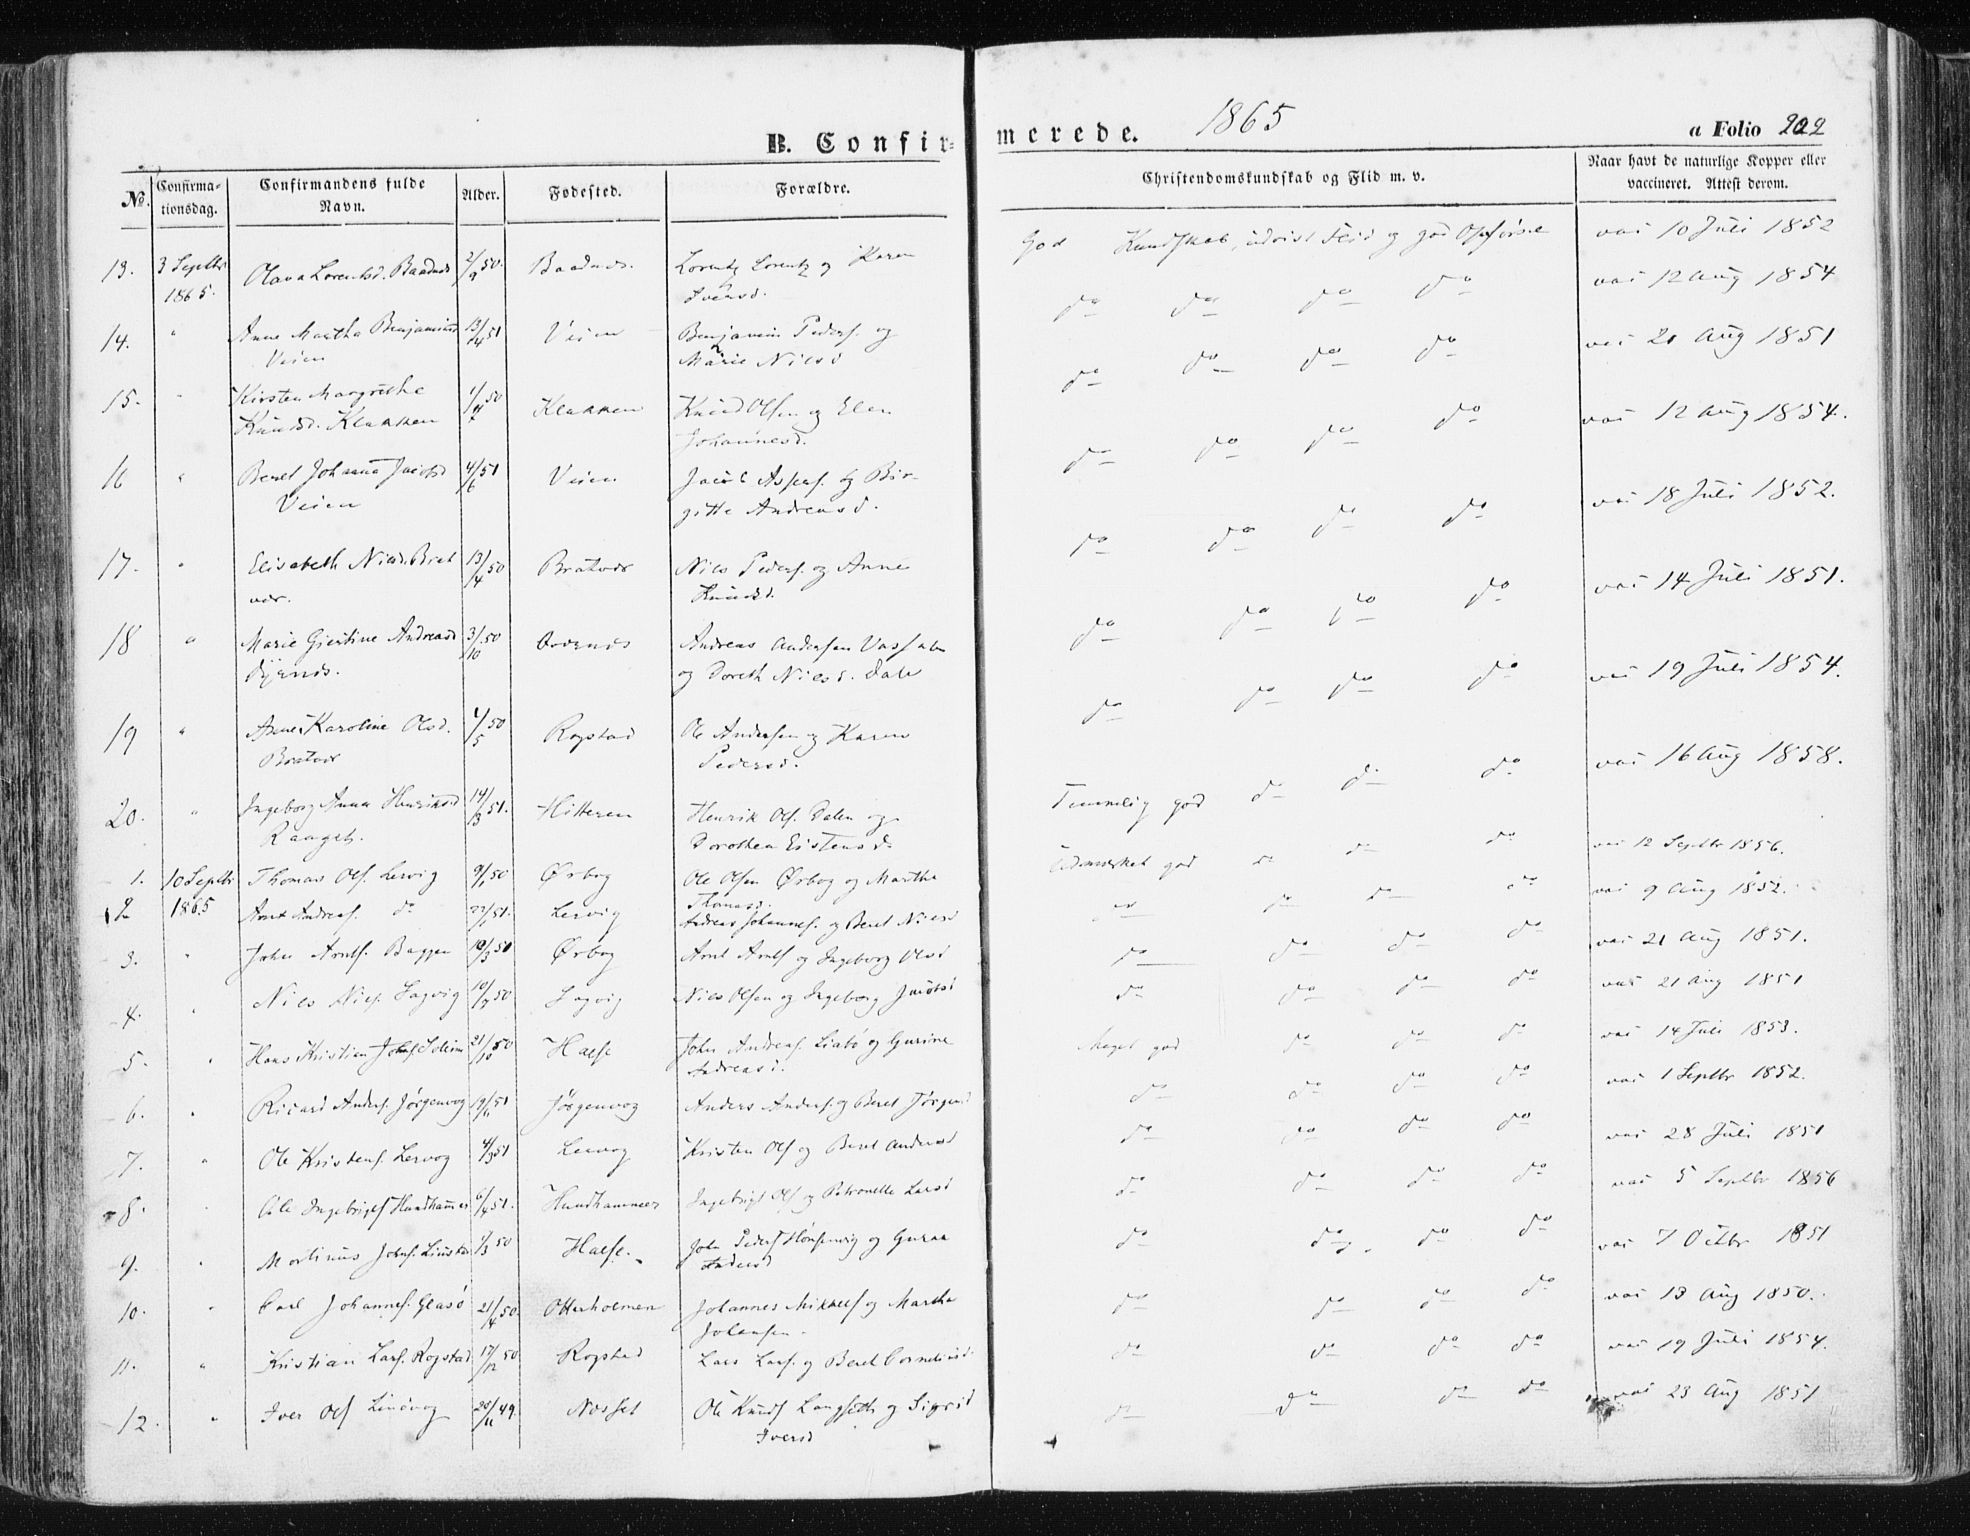 B. Confir-
merede. 1865 a Folio 202
No. Confirma-tionsdag. Confirmandens fulde Navn. Alder. Fødested. Forældre. Christendomskundskab og Flid m. v. Naar havt de naturlige Kopper eller vaccineret. Attest derom.
13. 3 Septbr Olava Lorentsd. Baadnes 2/9 50. Baadnes. Lorentz Lorentz og Karen God Kundskab, udvist Flid og god Opførsel vac 10 Juli 1852
1865. Iversd.
14. " Anne Martha Benjaminsd 13/4 51 Veien Benjamin Peders. og do do do do vac 12 Aug 1854
Veien Marie Nielsd
15. " Kirsten Margrethe 50 Klakken Knud Olsen og Elen do do do do vac 21 Aug 1851
Knudsd. Klakken Johannesd.
16 " Beret Johanna Jacobsd 4/6 51 Veien Jacob Aspens. og Bir- do do do do vac 12 Aug 1854.
Veien gitte Andreasd.
17. " Elisabeth Nielsd. Brat 13/4 50 Bratvær Niels Peders. og Anne do do do do vac 18 Juli 1852.
vær. Knudsd.
18 " Marie Gjertine Andreasd 3/10 50 Andreas Andersen do do do do vac 14 Juli 1851.
og Doreth Nielsd. Dale
19 " Anne Karoline Olsd. 1/5 50 Rogstad Ole Andersen og Karen do do do do vac 19 Juli 1854.
Bratvær Pedersd.
20. " Ingeborg Anna Henriksd 14/3 51. Hitteren Henrik Ols. Dalen og Temmelig god do do do vac 16 Aug 1858.
Dorothea Eistensd.
1. 10 Septbr Thomas Ols. Lervig 9/1 50 Ørbog Ole Olsen Ørbog og Martha Udmærket god do do do vac 12 Septbr 1856.
Thomasd.
2 1865 Arnt Andreas. do 51. Lervig Andreas Johannes. og Beret Nielsd do do do do vac 9 Aug 1852.
3. " John Arnts. Baggen 19/3 50 Ørbog Arnt Arnts og Ingeborg Olsd do do do do vac 21 Aug 1851.
4. " Niels Niels. Sagvig 50 Sagvig Niels Olsen og Ingeborg Jacobsd do do do do vac 21 Aug 1851
5. " Hans Kristian Johns. 21/10 50 Halse John Andreas. Liabø og Gurine Meget god do do do vac 14 Juli 1853.
Andreasd.
6. " Ricard Anders. Jørgenvog 19/11 51 Jørgenvog Anders Anders. og Beret Jørgensd do do do do vac 1 Septbr 1852.
7. " Ole Kristens. Lervog 4/3 51 Lervog Kristen Ols og Beret Andersd do do do do vac 28 Juli 1851
8. " Ole Ingebrigts Hundhammer 6/4 51. Hundhammer Ingebrigt Ols og Petronelle Larsd do do do do vac 5 Septbr 1856
9. " Martinus Johns. 7/3 50 Halse. John Peders og Guraa do do do do vac 7 Octbr 1851
Andersd
10. " Carl Johannes. Glasø 21/4 50. Otterholmen Johannes Mikkels og Martha do do do do vac 13 Aug 1850.
Johansen.
11. " Kristian Lars. Rogstad 17/12 50 Rogstad Lars Lars. og Beret Corneliusd. do do do do vac 19 Juli 1854.
12. " Iver Ols 20/11 49. Nosset Ole Knuds Langseth og Sigrid do do do do vac 23 Aug 1851
Iversd